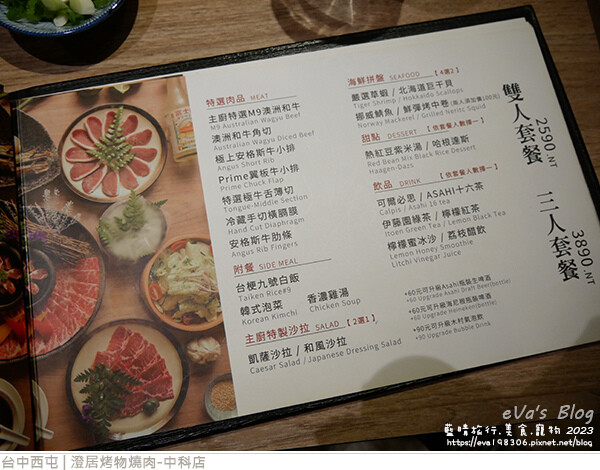 特選肉品 MEAT
主廚特選M9澳洲和牛
M9 Australian Wagyu Beef
澳洲和牛角切
Australian Wagyu Diced Beef
極上安格斯牛小排
Angus Short Rib
Prime翼板牛小排
Prime Chuck Flap
特選極牛舌薄切
Tongue-Middle Section
冷藏手切橫膈膜
Hand Cut Diaphragm
安格斯牛肋條
Angus Rib Fingers
附餐 SIDE MEAL
台梗九號白飯
Taiken Rice#9
韓式泡菜 香濃雞湯
Korean Kimchi Chicken Soup
主廚特製沙拉 SALAD 【2選1】
凱薩沙拉 / 和風沙拉
Caesar Salad / Japanese Dressing Salad
海鮮拼盤 SEAFOOD 【4選2】
嚴選草蝦 / 北海道巨干貝
Tiger Shrimp / Hokkaido Scallops
挪威鯖魚 / 鮮彈烤中卷(兩人須加價100元)
Norway Mackerel / Grilled Neritic Squid
甜點 DESSERT 【依套餐人數擇一】
熱紅豆紫米湯 / 哈根達斯
Red Bean Mix Black Rice Dessert
Haagen-Dazs
飲品 DRINK 【依套餐人數擇一】
可爾必思 / ASAHI十六茶
Calpis / Asahi 16 tea
伊藤園綠茶 / 檸檬紅茶
Itoen Green Tea / Lemon Black Tea
檸檬蜜冰沙 / 荔枝醋飲
Lemon Honey Smoothie
Litchi Vinegar Juice
+60元可升級Asahi瓶裝生啤酒
+60 Upgrade Asahi Draft Beer(bottle)
+60元可升級海尼根瓶裝啤酒
+60 Upgrade Heineken(bottle)
+90元可升級木村氣泡飲
+90 Upgrade Bubble Drink
雙人套餐 2590.NT
三人套餐 3890.NT
eVa's Blog
藍晴旅行.美食.寵物 2023
https://eva198306.pixnet.net/blog
台中西屯 | 澄居烤物燒肉-中科店